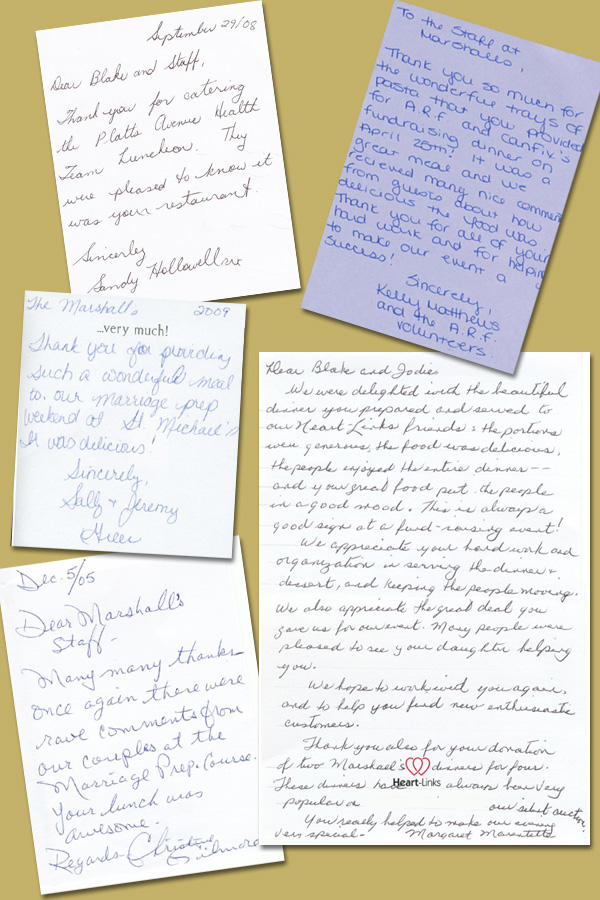 September 29/08
Dear Blake and Staff,
Thank you for catering
the Platts Avenue Health
Team Luncheon. They
were pleased to know it
was your restaurant.
Sincerely
Sandy Hollowell
To the Staff at
Marshalls,
Thank you so much for
the wonderful trays of
pasta that you provided
for A.R.F. and CanFix's
fundraising dinner on
April 25th! It was a
great meal and we
recieved many nice comments
from guests about how
delicious the food was.
Thank you for all of your
hard work and for helping
to make our event a
success!
Sincerely,
Kelly Matthews
and the A.R.F.
volunteers.
The Marshall's 2009
...very much!
Thank you for providing
such a wonderful meal
to our marriage prep
weekend at St. Michael's
It was delicious!
Sincerely,
Sally & Jeremy
Dec. 5/05
Dear Marshall's
Staff -
Many many thanks
once again there were
rave comments from
our couples at the
Marriage Prep. Course.
Your lunch was
awesome.
Regards Christine
Dear Blake and Jodie,
We were delighted with the beautiful
dinner you prepared and served to
our Heart-Links friends: the portions
were generous, the food was delicious,
the people enjoyed the entire dinner --
and your great food put the people
in a good mood. This is always a
good sign at a fund-raising event!
We appreciate your hard work and
organization in serving the dinner &
dessert, and keeping the people moving.
We also appreciate the great deal you
gave us for our event. Many people were
pleased to see your daughter helping
you.
We hope to work with you again,
and to help you find new enthusiastic
customers.
Thank you also for your donation
of two Marshall's dinners for four.
Heart-Links
These dinners have always been very
popular our silent auction.
You really helped to make our evening
very special - Margaret